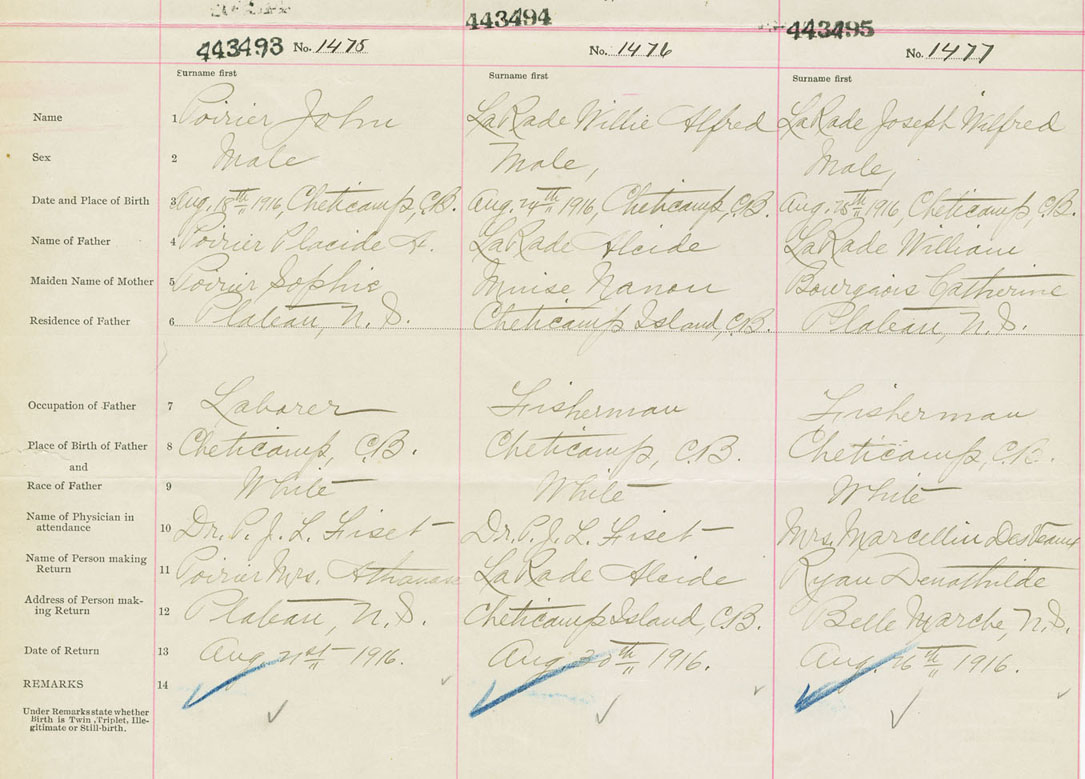 443493 No. 1475
443494
No. 1476
443495
No. 1477
Surname first
Surname first
Surname first
Name 1 Poirier John LaRade Willie Alfred LaRade Joseph Wilfred
Sex 2 Male Male, Male,
Date and Place of Birth 3 Aug. 18th 1916, Cheticamp, C.B. Aug. 24th 1916, Cheticamp, C.B. Aug. 25th 1916, Cheticamp, C.B.
Name of Father 4 Poirier Placide A. LaRade Alcide LaRade William
Maiden Name of Mother 5 Poirier Sophie Muise Nanon Bourgeois Catherine
Residence of Father 6 Plateau, N.S. Cheticamp Island, C.B. Plateau, N.S.
Occupation of Father 7 Laborer Fisherman Fisherman
Place of Birth of Father 8 Cheticamp, C.B. Cheticamp, C.B. Cheticamp, C.B.
and
Race of Father 9 White White White
Name of Physician in
attendance 10 Dr. P. J. L. Fiset Dr. P. J. L. Fiset Mrs. Marcellin DesVeaux
Name of Person making
Return 11 Poirier Mrs. LaRade Alcide Ryan
Address of Person mak-
ing Return 12 Plateau, N.S. Cheticamp Island, C.B. Belle Marche, N.S.
Date of Return 13 Aug 21st 1916. Aug. 30th 1916. Aug. 26th 1916.
REMARKS 14
Under Remarks state whether
Birth is Twin, Triplet, Ille-
gitimate or Still-birth.